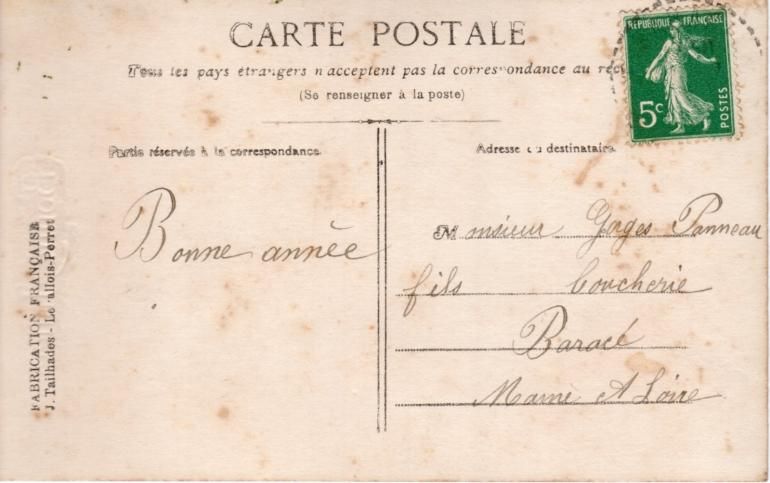 CARTE POSTALE
Tous les pays étrangers n'acceptent pas la correspondance au
(Se renseigner à la poste)
REPUBLIQUE FRANÇAISE
5c
POSTES
Partie réservée à la correspondance
Adresse du destinataire
Bonne année
Monsieur Goges Panneau
fils boucherie
Baracé
Maine et Loire
FABRICATION FRANÇAISE
J. Tailhades - Levallois-Perret